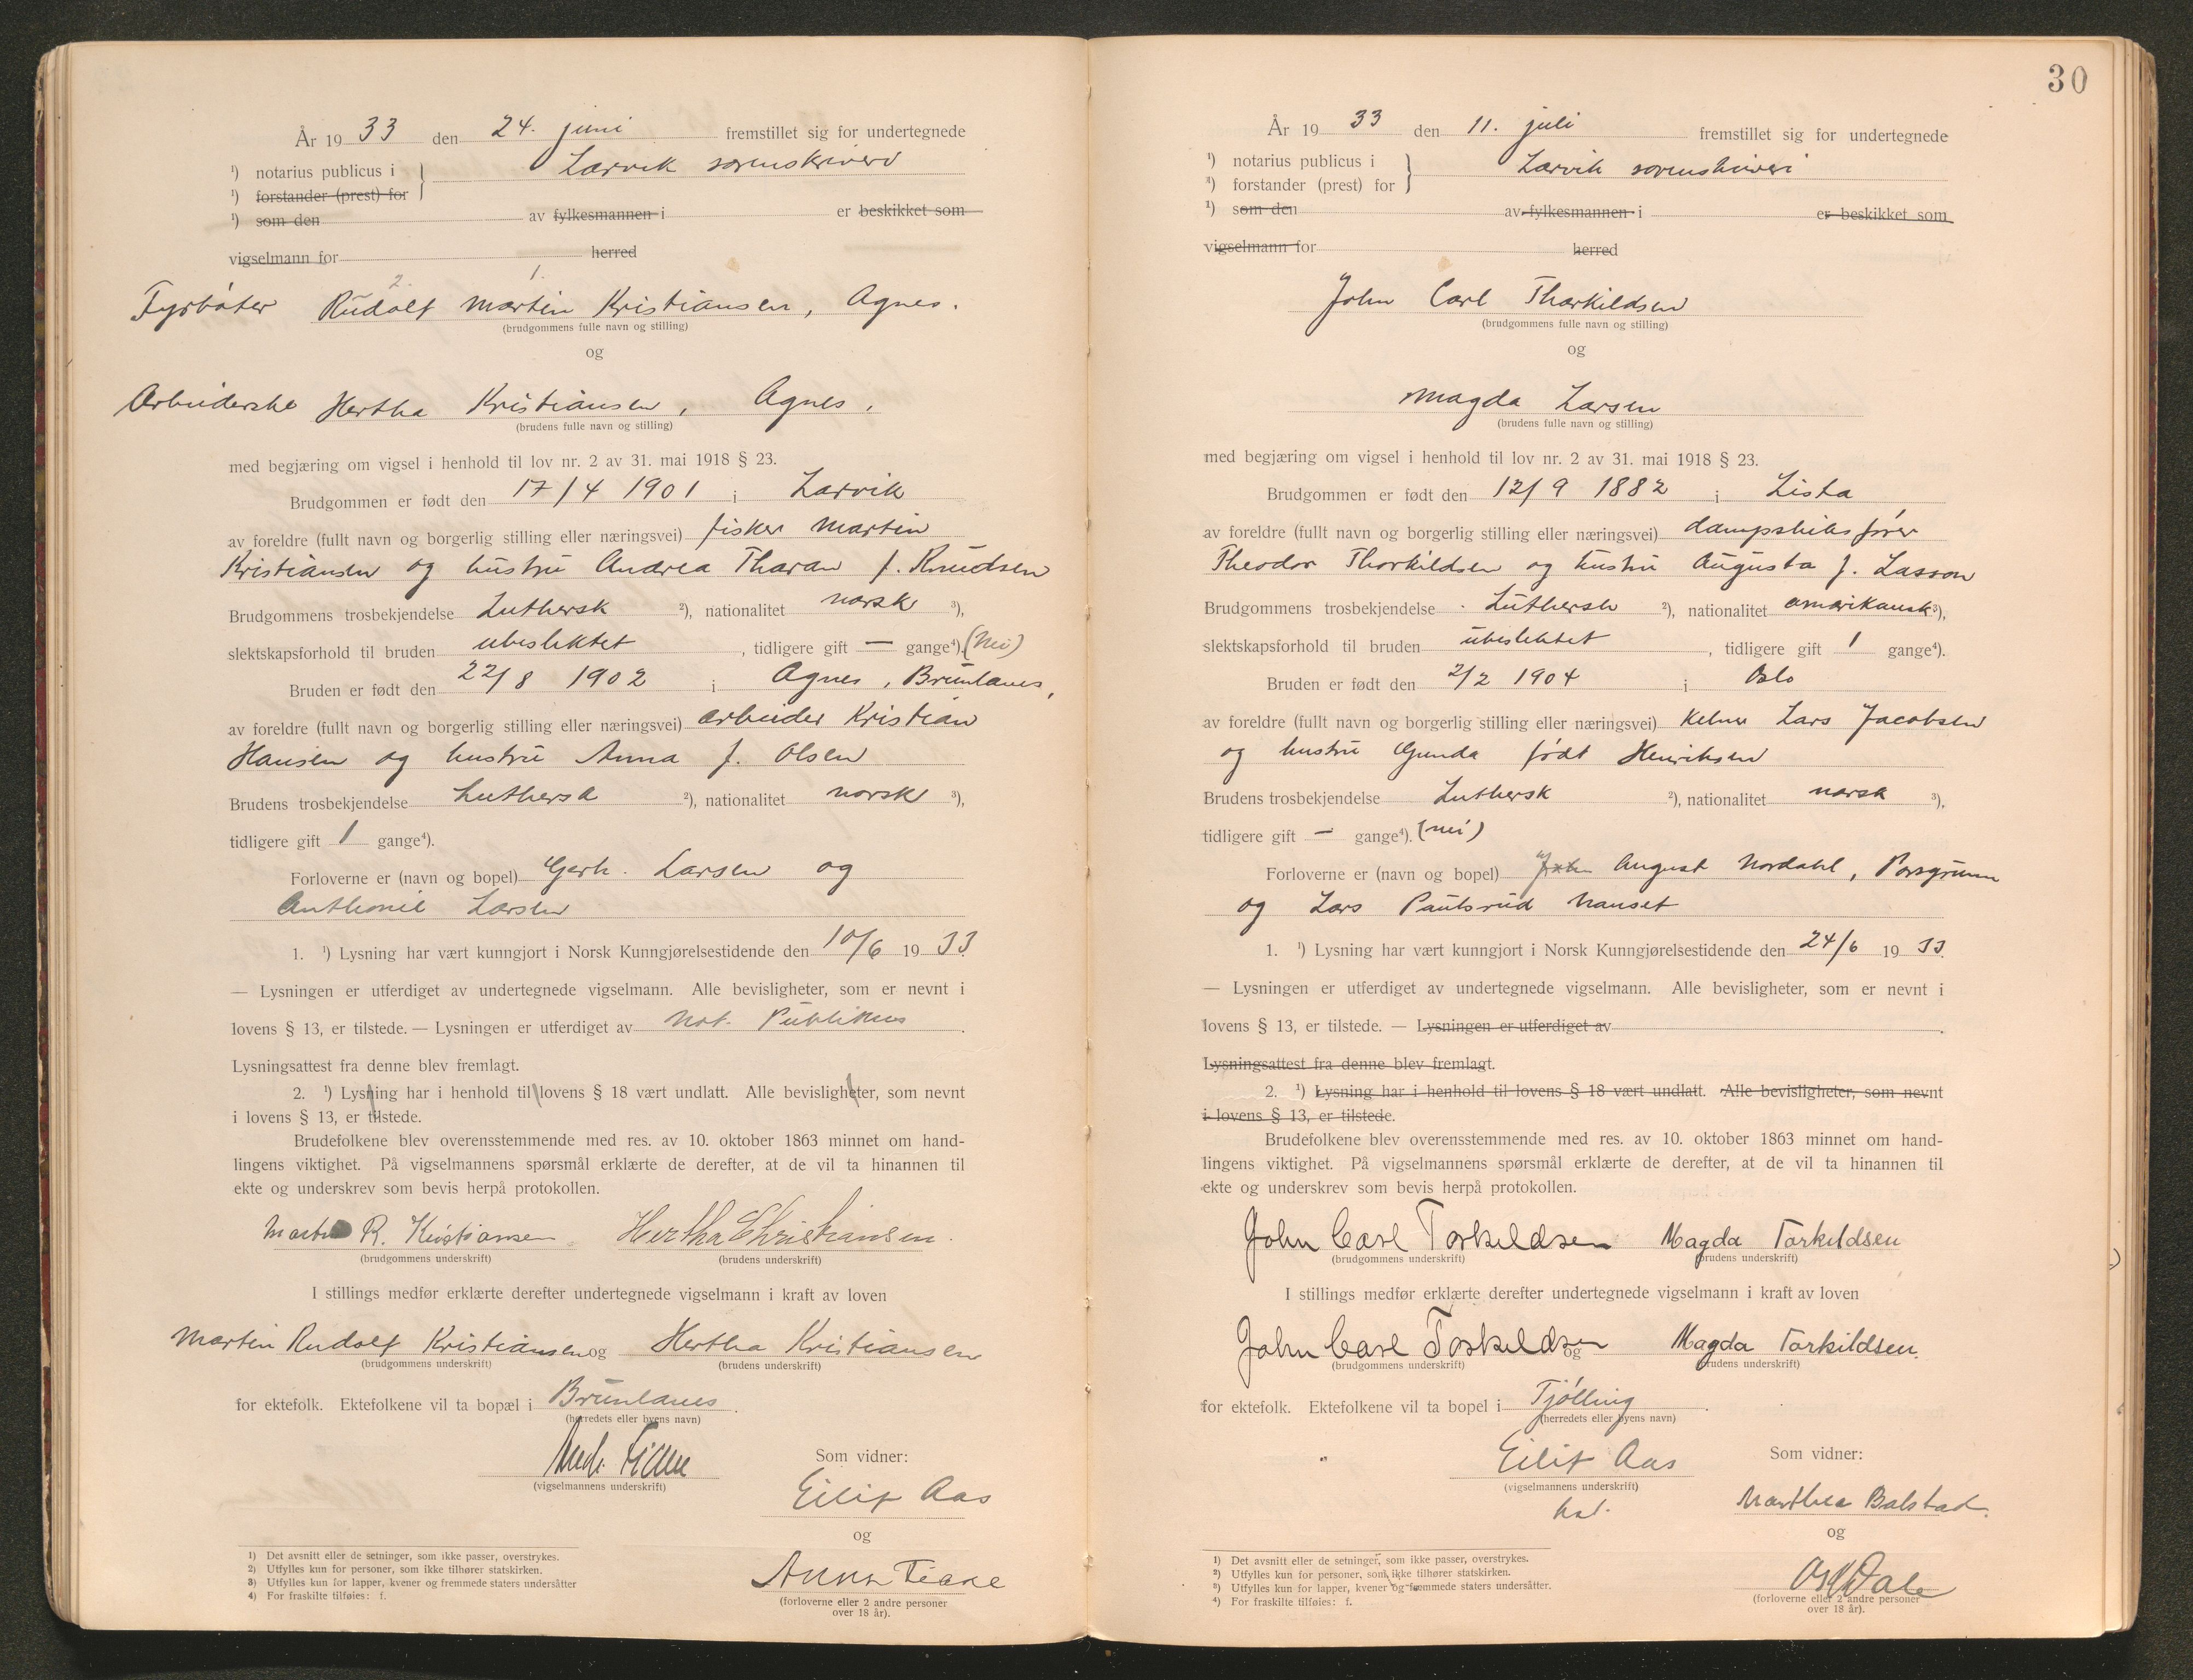 År 19 33 den 24. juni fremstillet sig for undertegnede
¹) notarius publicus i } Larvik sorenskriveri
¹) forstander (prest) for
¹) som den av fylkesmannen i er beskikket som
vigselmann for herred
2. 1.
Fyrbøter Rudolf Martin Kristiansen, Agnes.
(brudgommens fulle navn og stilling)
og
Arbeiderske Hertha Kristiansen, Agnes.
(brudens fulle navn og stilling)
med begjæring om vigsel i henhold til lov nr. 2 av 31. mai 1918 § 23.
Brudgommen er født den 17/4 1901 i Larvik
av foreldre (fullt navn og borgerlig stilling eller næringsvei) fisker Martin
Kristiansen og hustru Andrea Tharan f. Knudsen
Brudgommens trosbekjendelse Luthersk ²), nationalitet norsk ³),
slektskapsforhold til bruden ubeslektet, tidligere gift — gange⁴). (Nei)
Bruden er født den 22/8 1902 i Agnes, Brunlanes,
av foreldre (fullt navn og borgerlig stilling eller næringsvei) arbeider Kristian
Hansen og hustru Anna f. Olsen
Brudens trosbekjendelse Luthersk ²), nationalitet norsk ³),
tidligere gift 1 gange⁴).
Forloverne er (navn og bopel) Gerh. Larsen og
Anthonie Larsen
1. ¹) Lysning har vært kunngjort i Norsk Kunngjørelsestidende den 10/6 19 33.
— Lysningen er utferdiget av undertegnede vigselmann. Alle bevisligheter, som er nevnt i
lovens § 13, er tilstede. — Lysningen er utferdiget av Not. Publikus.
Lysningsattest fra denne blev fremlagt.
2. ¹) Lysning har i henhold til lovens § 18 vært undlatt. Alle bevisligheter, som nevnt
i lovens § 13, er tilstede.
Brudefolkene blev overensstemmende med res. av 10. oktober 1863 minnet om hand-
lingens viktighet. På vigselmannens spørsmål erklærte de derefter, at de vil ta hinannen til
ekte og underskrev som bevis herpå protokollen.
Martin R. Kristiansen Hertha Christiansen.
(brudgommens underskrift) (brudens underskrift)
I stillings medfør erklærte derefter undertegnede vigselmann i kraft av loven
Martin Rudolf Kristiansen og Hertha Kristiansen
(brudgommens underskrift) (brudens underskrift)
for ektefolk. Ektefolkene vil ta bopæl i Brunlanes.
(herredets eller byens navn)
Fiane
(vigselmannens underskrift)
Som vidner:
Eilif Aas
og
Anna Fiane
(forloverne eller 2 andre personer
over 18 år).
1) Det avsnitt eller de setninger, som ikke passer, overstrykes.
2) Utfylles kun for personer, som ikke tilhører statskirken.
3) Utfylles kun for lapper, kvener og fremmede staters undersåtter
4) For fraskilte tilføies: f.
30
År 19 33 den 11. juli fremstillet sig for undertegnede
¹) notarius publicus i } Larvik sorenskriveri
¹) forstander (prest) for
¹) som den av fylkesmannen i er beskikket som
vigselmann for herred
John Carl Thorkildsen
(brudgommens fulle navn og stilling)
og
Magda Larsen
(brudens fulle navn og stilling)
med begjæring om vigsel i henhold til lov nr. 2 av 31. mai 1918 § 23.
Brudgommen er født den 12/9 1882 i Lista
av foreldre (fullt navn og borgerlig stilling eller næringsvei) dampskibsfører
Theodor Thorkildsen og hustru Augusta f. Lasson
Brudgommens trosbekjendelse Luthersk ²), nationalitet amerikansk ³),
slektskapsforhold til bruden ubeslektet, tidligere gift 1 gange⁴).
Bruden er født den 2/2 1904 i Oslo
av foreldre (fullt navn og borgerlig stilling eller næringsvei) Kelner Lars Jacobsen
og hustru Gunda født Henriksen
Brudens trosbekjendelse Luthersk ²), nationalitet norsk ³),
tidligere gift — gange⁴). (nei)
Forloverne er (navn og bopel) John August Nordahl, Porsgrunn
og Lars Paulsrud Nanset
1. ¹) Lysning har vært kunngjort i Norsk Kunngjørelsestidende den 24/6 19 33.
— Lysningen er utferdiget av undertegnede vigselmann. Alle bevisligheter, som er nevnt i
lovens § 13, er tilstede. — Lysningen er utferdiget av .
Lysningsattest fra denne blev fremlagt.
2. ¹) Lysning har i henhold til lovens § 18 vært undlatt. Alle bevisligheter, som nevnt
i lovens § 13, er tilstede.
Brudefolkene blev overensstemmende med res. av 10. oktober 1863 minnet om hand-
lingens viktighet. På vigselmannens spørsmål erklærte de derefter, at de vil ta hinannen til
ekte og underskrev som bevis herpå protokollen.
John Carl Torkildsen Magda Torkildsen
(brudgommens underskrift) (brudens underskrift)
I stillings medfør erklærte derefter undertegnede vigselmann i kraft av loven
John Carl Torkildsen og Magda Torkildsen.
(brudgommens underskrift) (brudens underskrift)
for ektefolk. Ektefolkene vil ta bopel i Tjølling.
(herredets eller byens navn)
Eilif Aas
(vigselmannens underskrift)
Som vidner:
Marthea Bolstad.
og
Dale
(forloverne eller 2 andre personer
over 18 år).
1) Det avsnitt eller de setninger, som ikke passer, overstrykes.
²) Utfylles kun for personer, som ikke tilhører statskirken.
³) Utfylles kun for lapper, kvener og fremmede staters undersåtter.
⁴) For fraskilte tilføies: f.